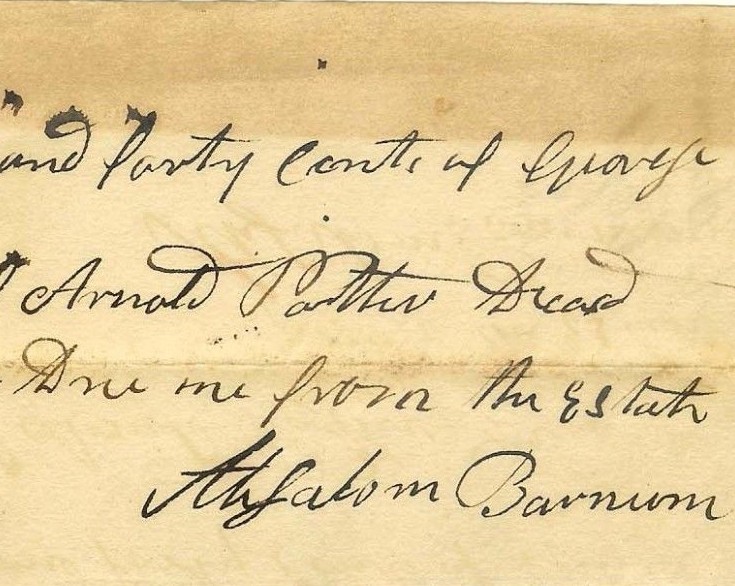 and forty cents of George
Arnold Potter Decasd
Due me from the Estate
Absalom Barnum